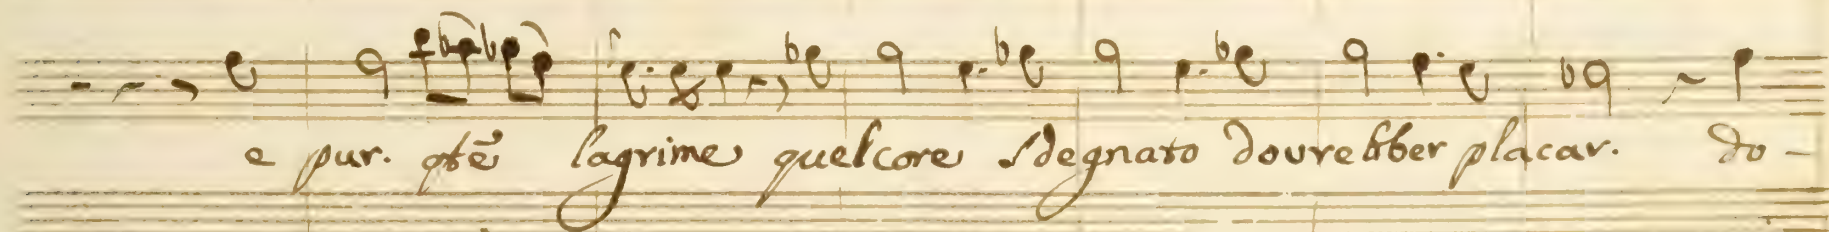 e pur. qste lagrime quel core sdegnato dovrebber placar. do-